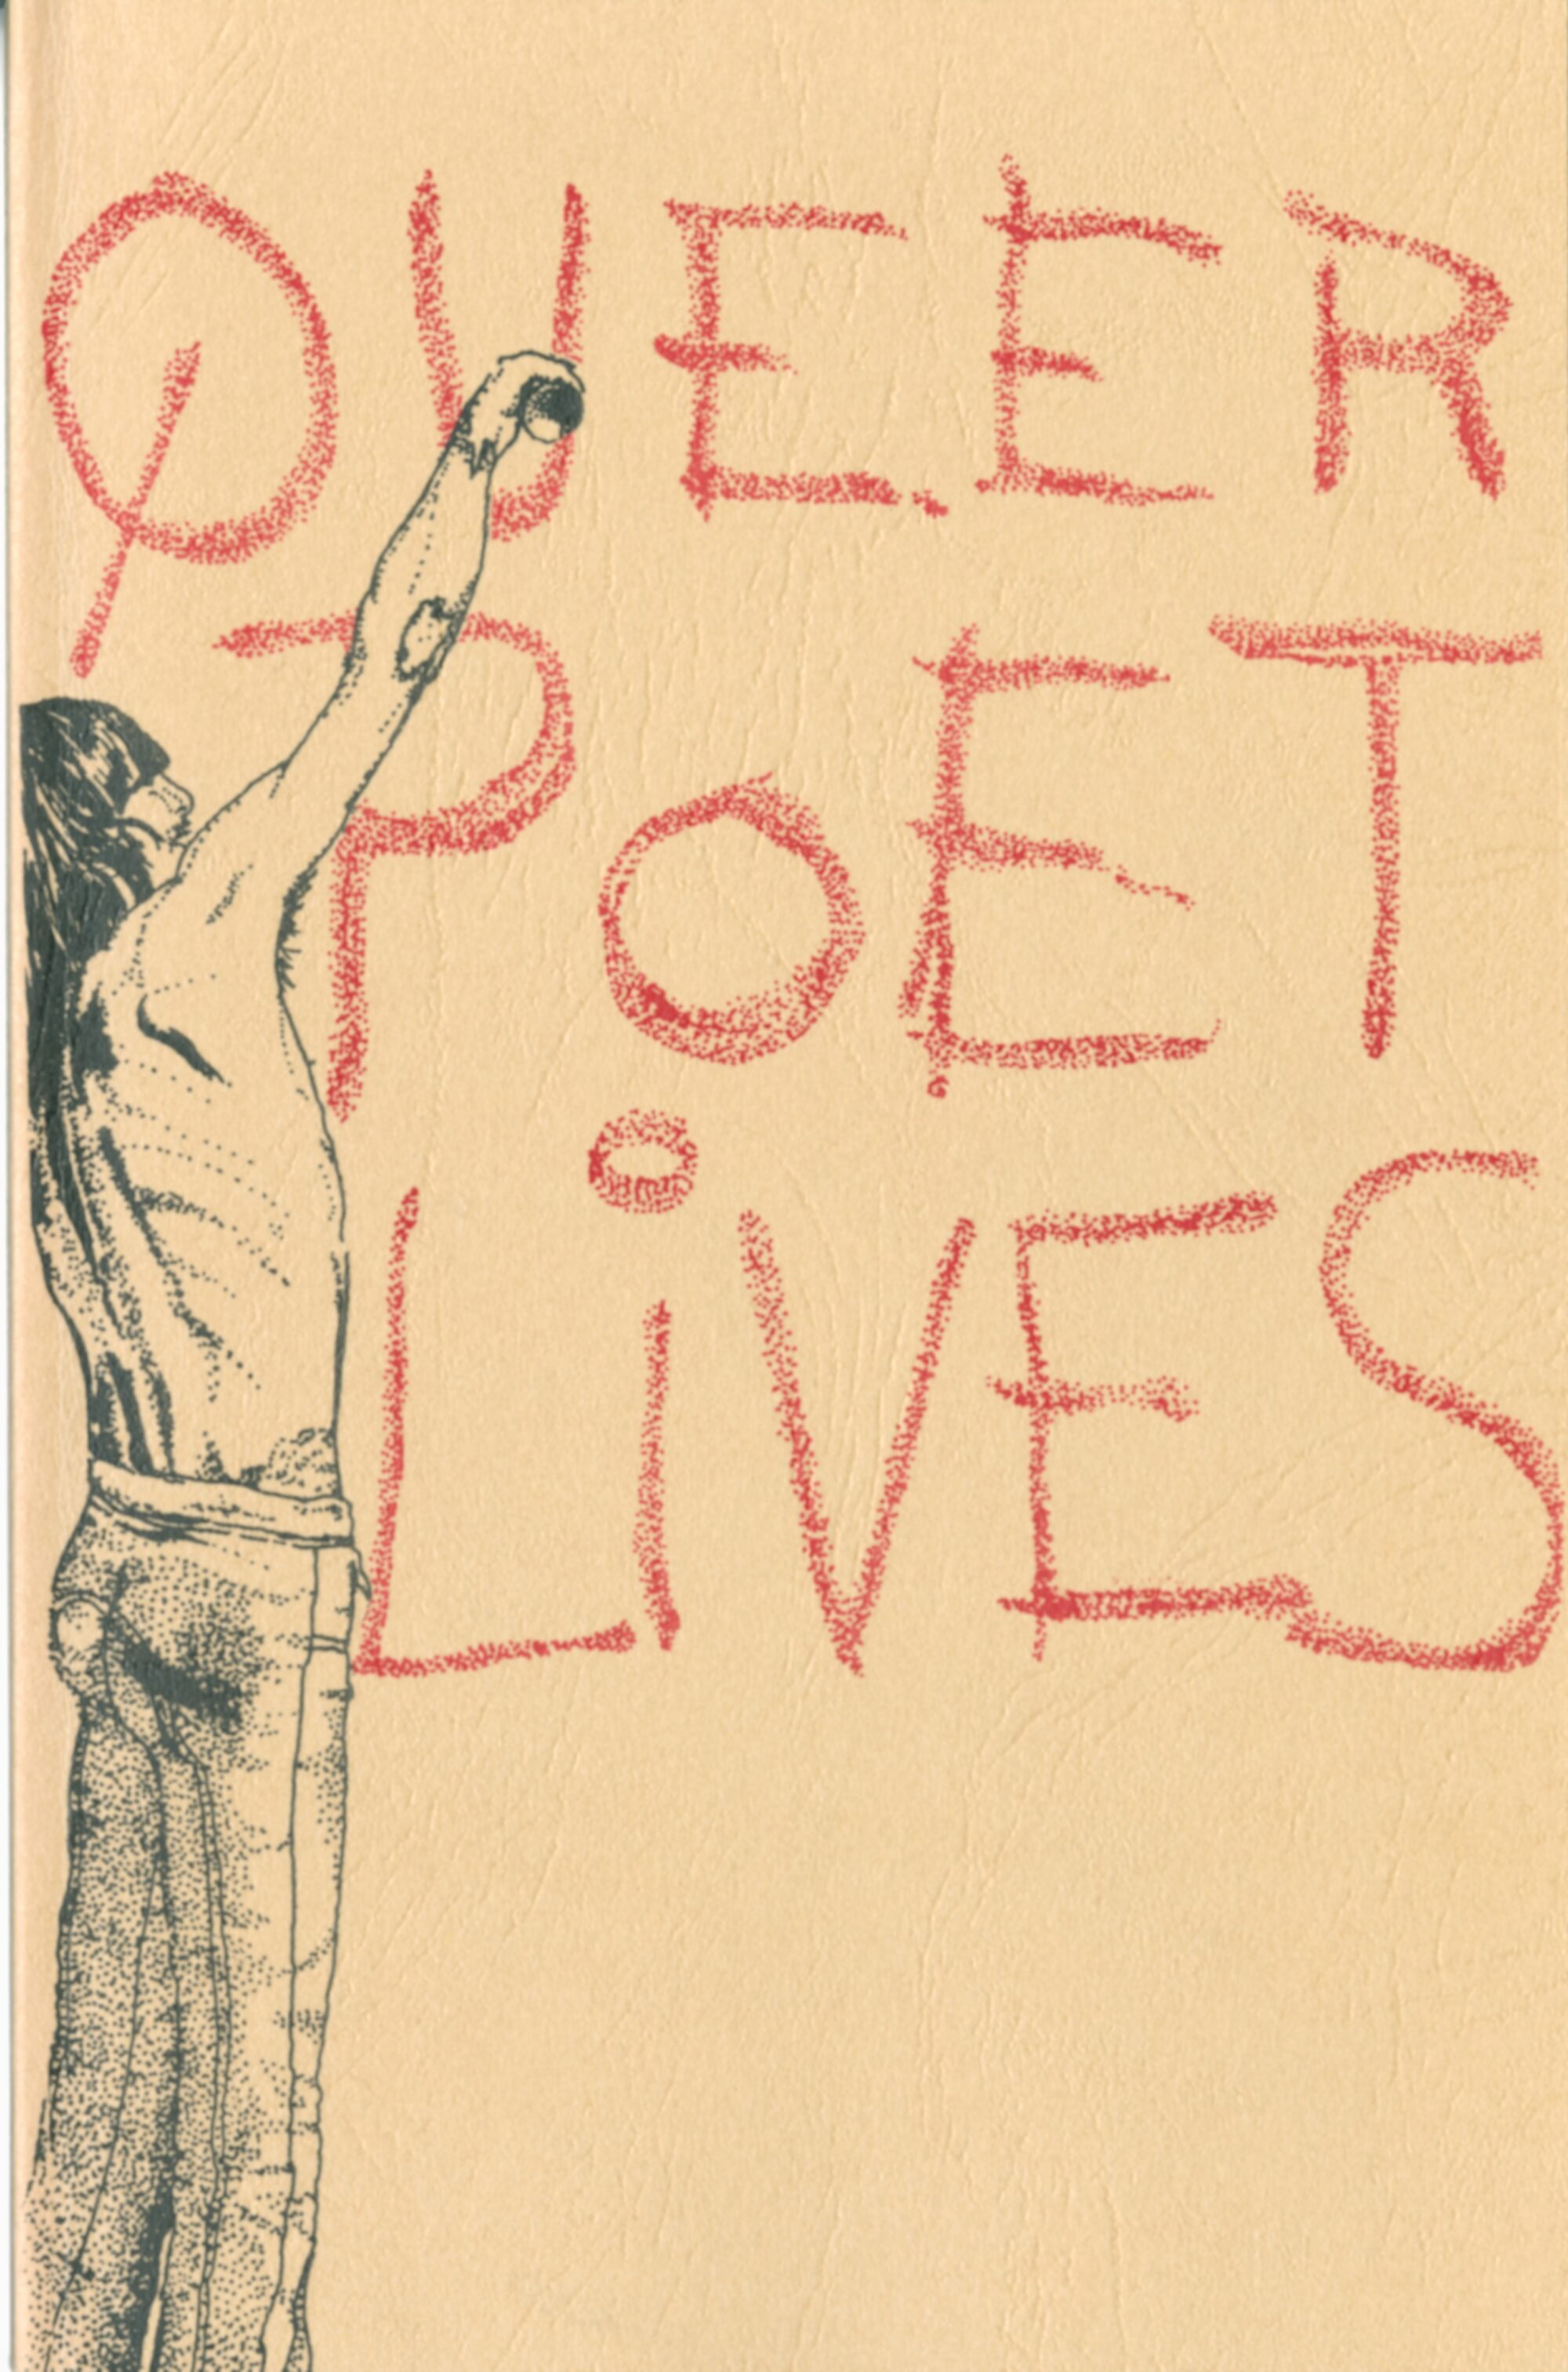 QUEER
POET
LiVES